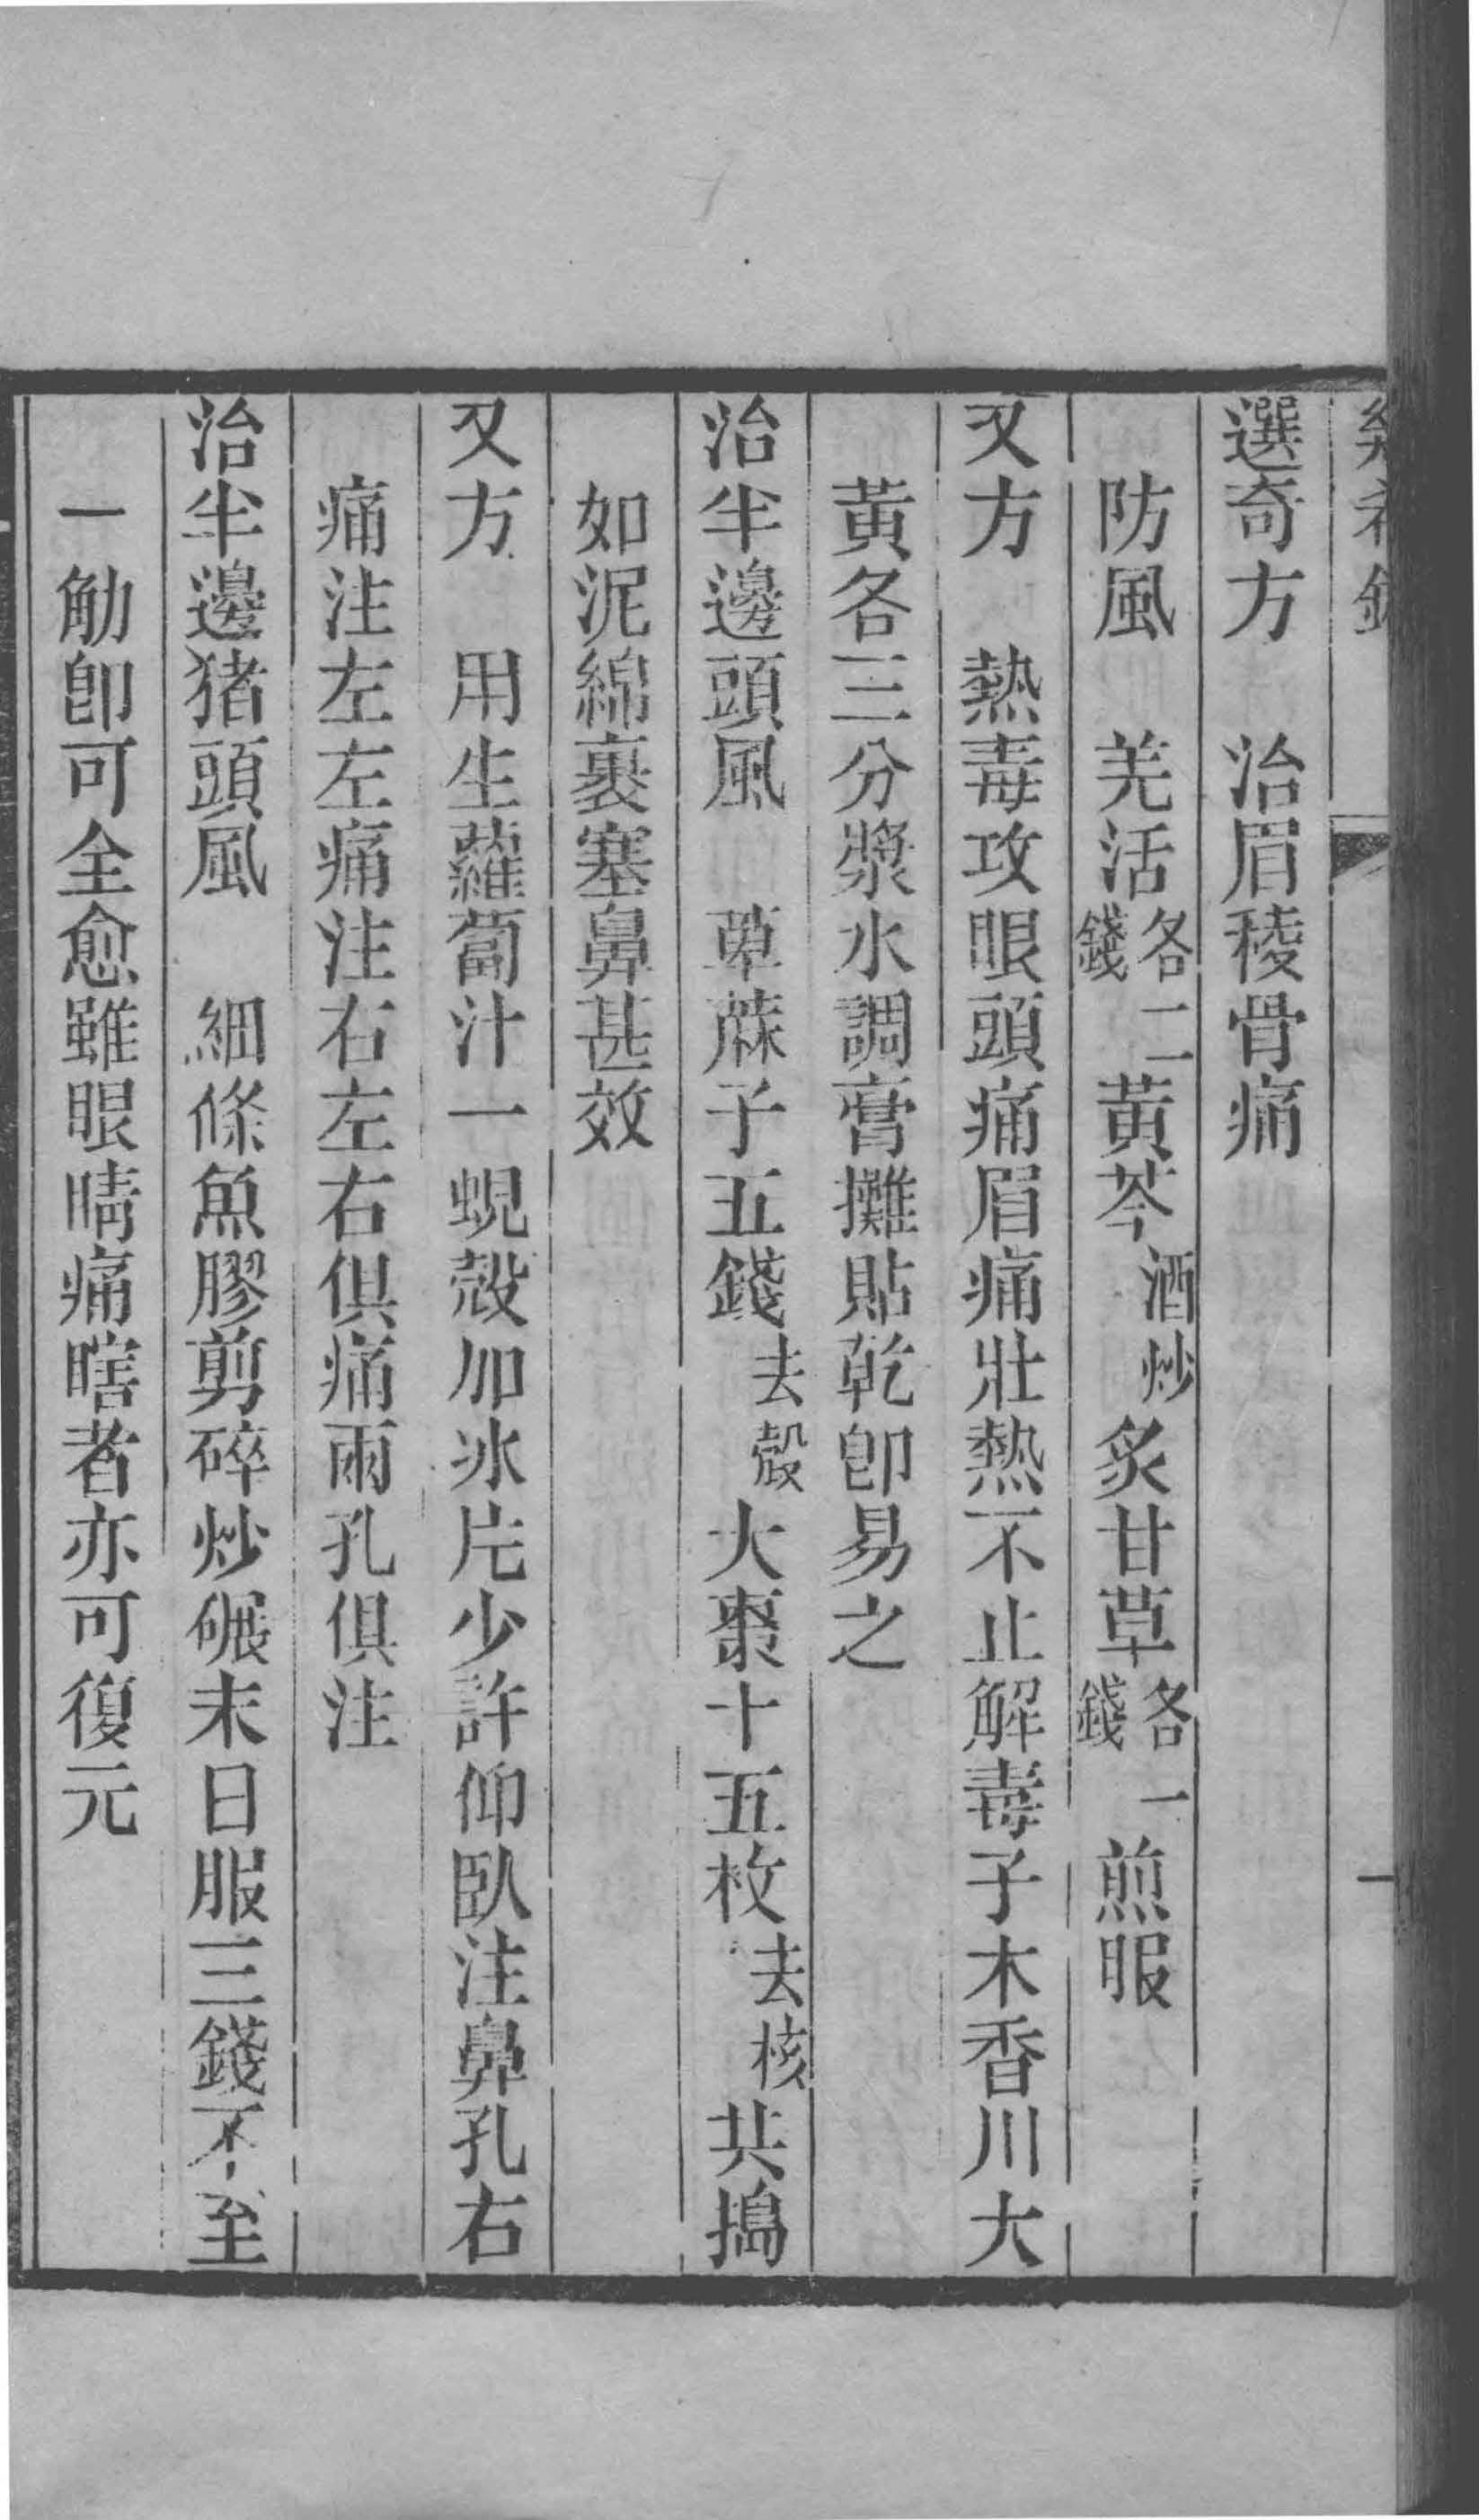 選奇方　治眉稜骨痛
防風　羌活各二錢黃芩酒炒炙甘草各一錢煎服
又方　熱毒攻眼頭痛眉痛壯熱不止解毒子木香川大
黃各三分漿水調膏攤貼乾卽易之
治半邊頭風　萆蔴子五錢去殼大棗十五枚去核共搗
如泥綿裹塞鼻甚效
又方　用生蘿蔔汁一蜆殼加冰片少許仰臥注鼻孔右
痛注左左痛注右左右俱痛兩孔俱注
治半邊猪頭風　細條魚膠剪碎炒碾末日服三錢不至
一觔卽可全愈雖眼睛痛瞎者亦可復元